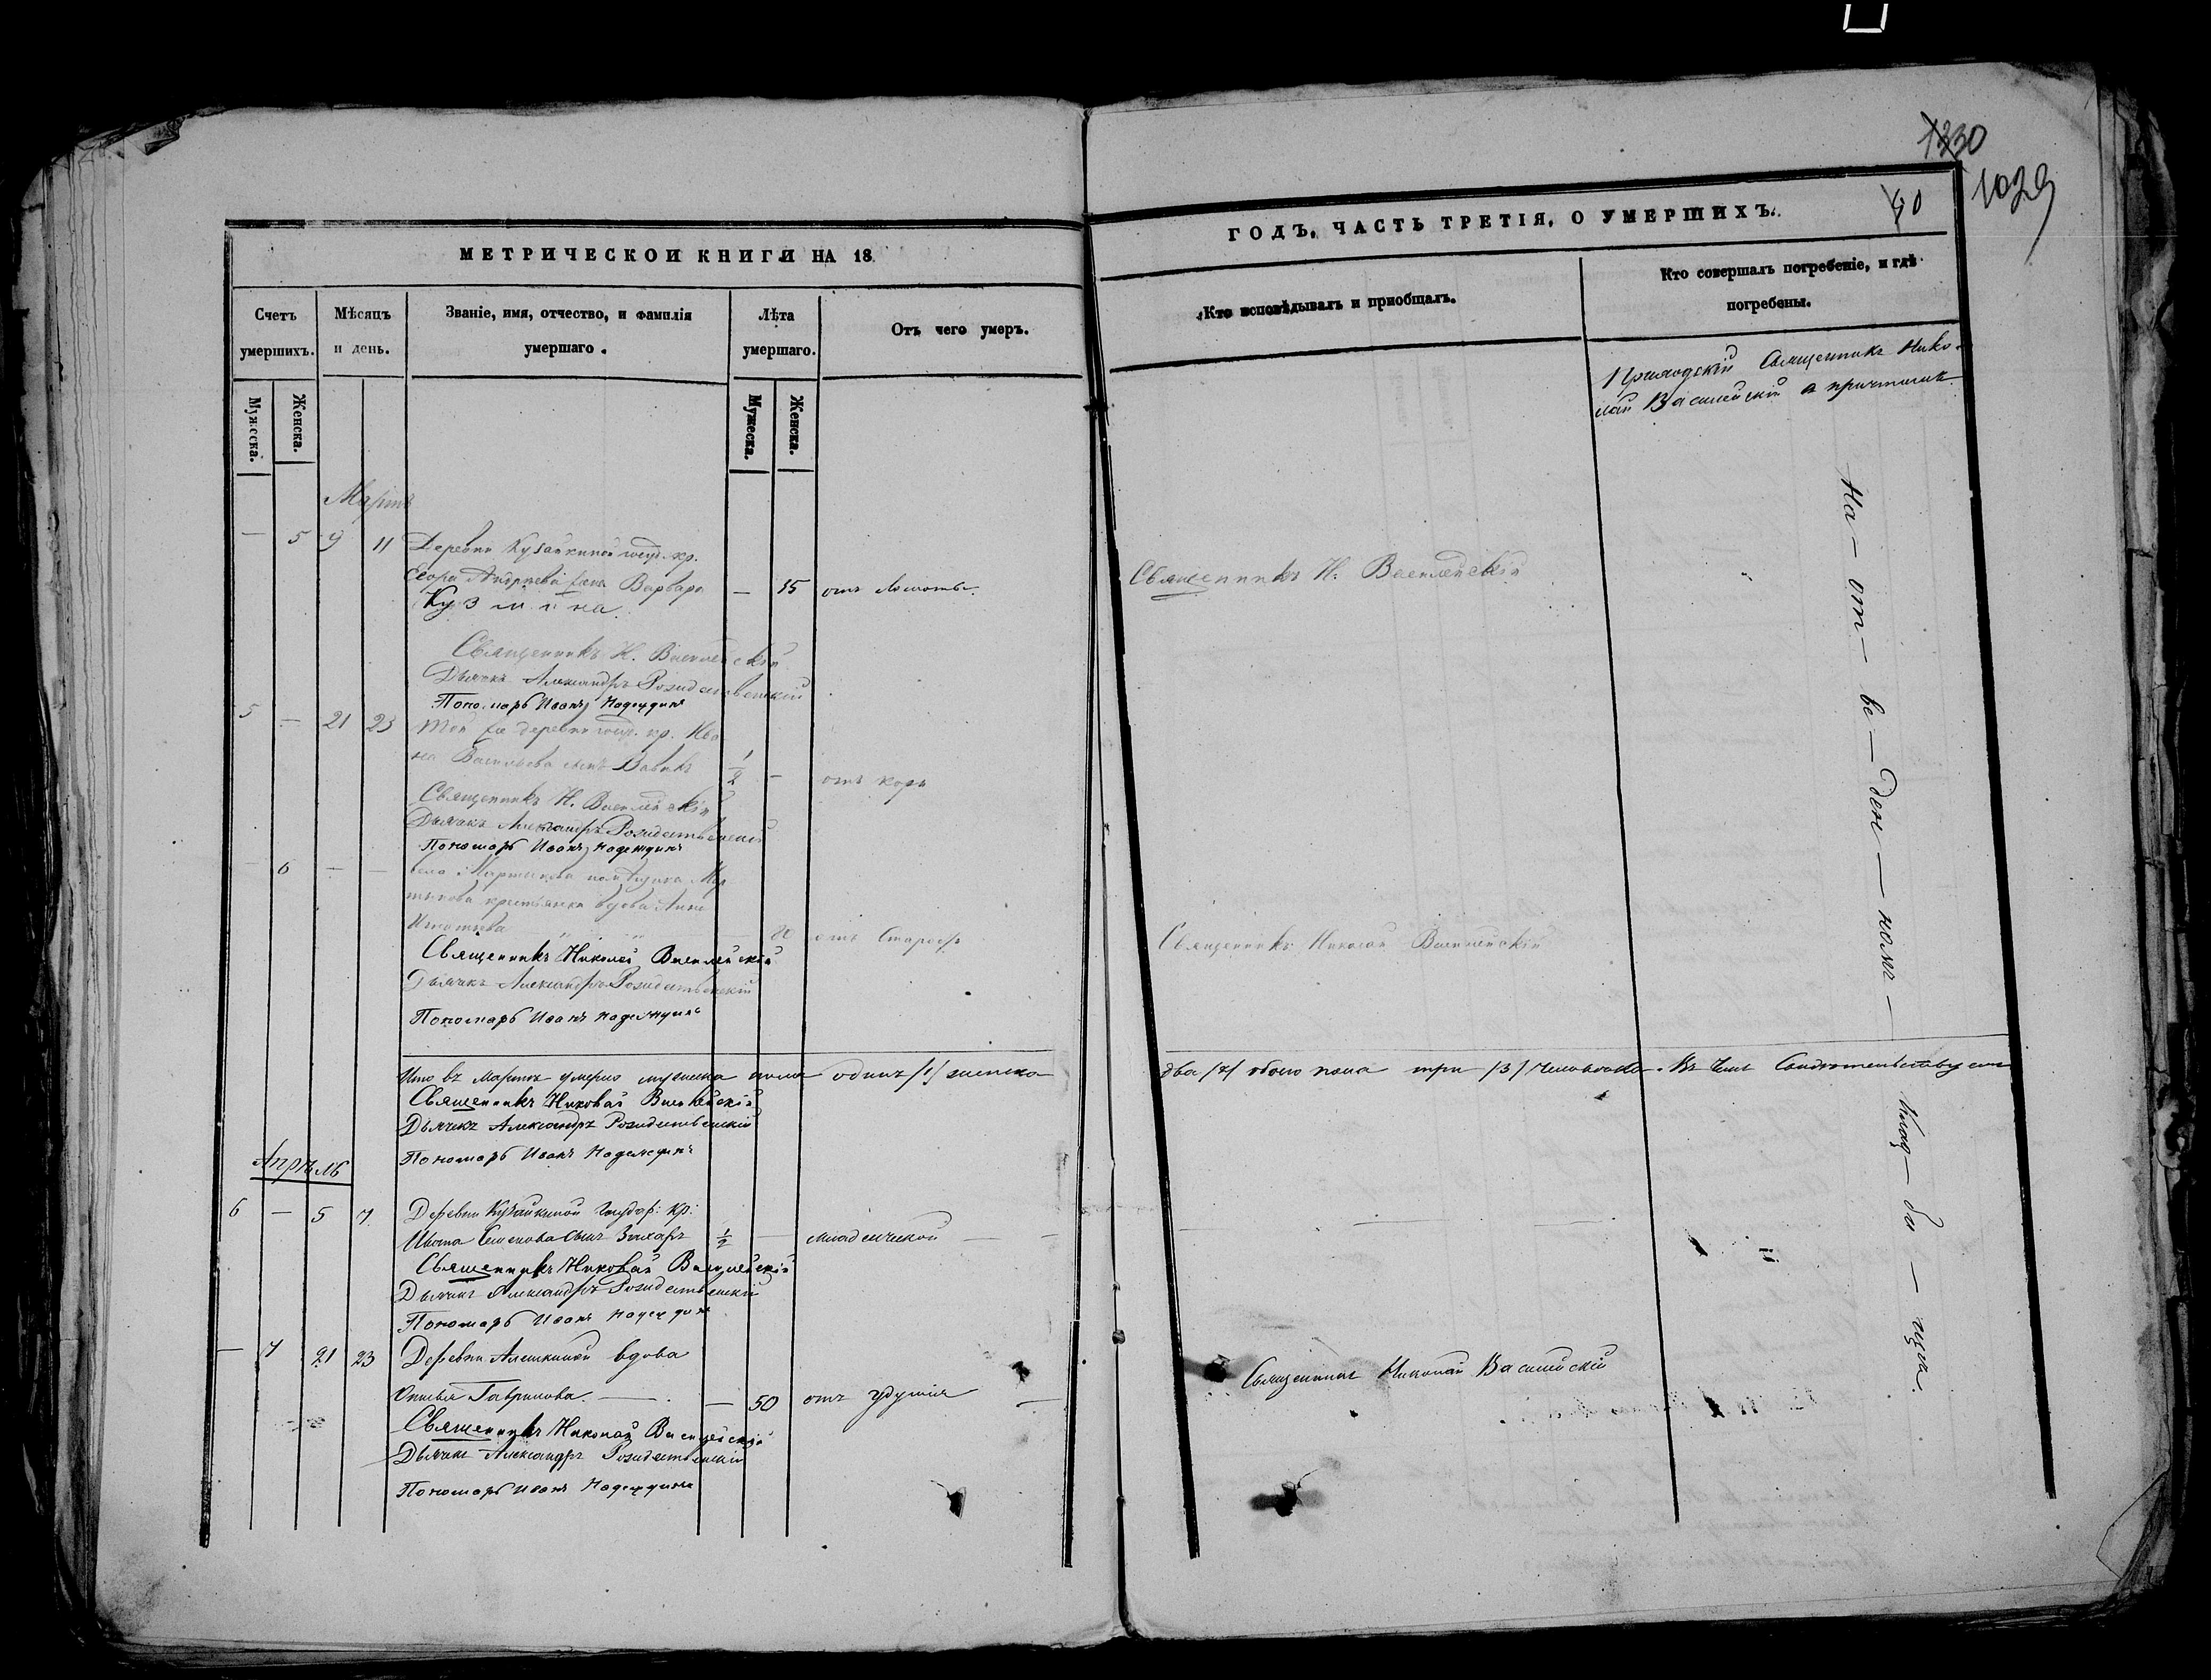 МЕТРИЧЕСКОЙ КНИГИ НА 18
Счетъ умершихъ.
Мѣсяцъ и день.
Званіе, имя, отчество, и фамилія умершаго.
Лѣта умершаго.
Отъ чего умеръ.
Мужеска.
Женска.
Мужеска.
Женска.
Мартъ
— 5 9 11 Деревни Кузайкиной госуд. кр.
Егора Андреева жена Варвара — 35 отъ
Кузмина
Священникъ Н. Василейскій
Дьячекъ Александръ Рождественскій
Пономарь Иванъ Надеждинъ
5 — 21 23 Той же деревни госуд. кр. Ива
на Васильева сынъ 1/2 — отъ кори
Священникъ Н. Василейскій
Дьячекъ Александръ Рождественскій
Пономарь Иванъ Надеждинъ
6 — — села Мартынова помѣщика Мар
тынова крестьянка вдова Анна
Игнатьева 80 отъ старости
Священникъ Николай Василейскій
Дьячекъ Александръ Рождественскій
Пономарь Иванъ Надеждинъ
Итого въ Мартѣ умерло мужеска пола одинъ /1/ женска
Священникъ Николай Василейскій
Дьячекъ Александръ Рождественскій
Пономарь Иванъ Надеждинъ
Апрѣль
6 — 5 7 Деревни Кузайкиной государ: кр:
Семенова сынъ Захаръ 1/2 — младенческой —
Священникъ Николай Василейскій
Дьячекъ Александръ Рождественскій
Пономарь Иванъ Надеждинъ
— 7 21 23 Деревни Алешкиной вдова
Гаврилова. — — 50 отъ удушія —
Священникъ Николай Василейскій
Дьячекъ Александръ Рождественскій
Пономарь Иванъ Надеждинъ
1330
1029
ГОДЪ, ЧАСТЬ ТРЕТІЯ, О УМЕРШИХЪ.
Кто исповѣдывалъ и пріобщалъ.
Кто совершалъ погребеніе, и гдѣ погребены.
Приходскій Священникъ Нико-
лай Василейскій с причтомъ
Священникъ Н. Василейскій
Священникъ Николай Василейскій
два /2/ обоего пола три /3/ человека. Въ чемъ свидетельствуемъ
Священникъ Николай Василейскій
На — от — ве — ден — номъ —
клад — би — щѣ.